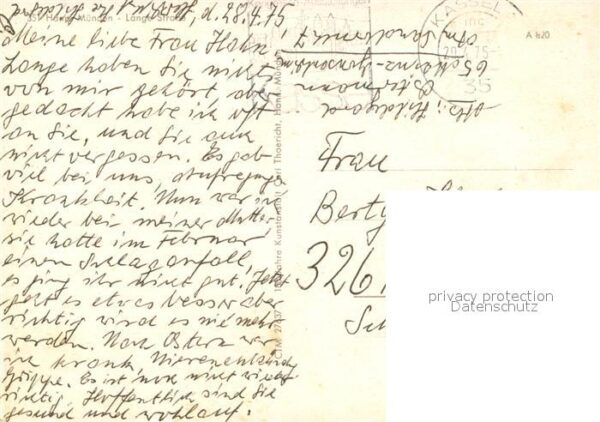 351 Hann. Münden - Lange Straße
d. 28.7.75
Meine liebe Frau Hahn!
Lange haben Sie nichts
von mir gehört, aber
gedacht habe ich oft
an Sie, und Sie auch
nicht vergessen. Es gab
viel bei uns, Aufregung
Krankheit. Nun war ich
wieder bei meiner Mutter
sie hatte im Februar
einen Schlaganfall,
es ging ihr nicht gut. Jetzt
geht es etwas besser aber
richtig wird es nie mehr
werden. Nach Ostern war
ich krank Nierenentzündg
Grippe. Es ist noch nicht wieder
richtig. Hoffentlich sind Sie
gesund und wohlauf.
Carl Thoericht, Hann. Münden
Jahre Kunstanstalt
Abs.: Hildegard
65 Mainz-Gonsenheim
KASSEL
35
A 820
Frau
Berty
326
privacy protection
Datenschutz